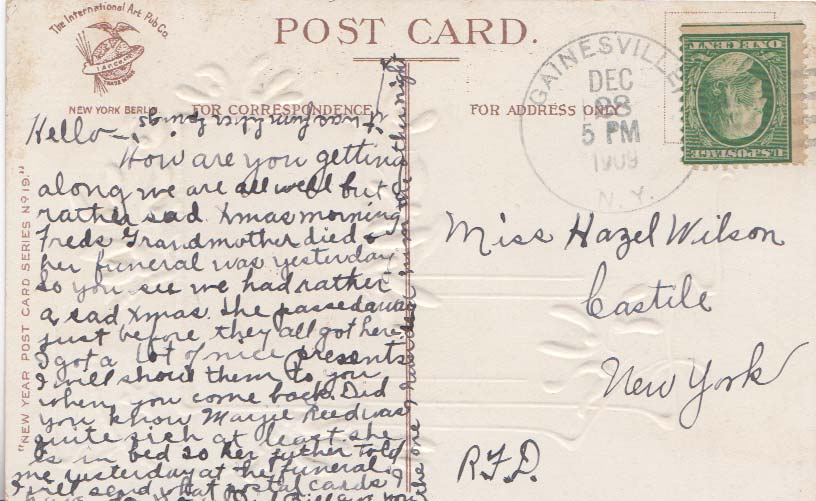 The International Art Pub Co.
TRADE MARK
NEW YORK BERLIN
POST CARD.
FOR CORRESPONDENCE
FOR ADDRESS ONLY
GAINESVILLE
DEC
28
5 PM
1909
N.Y.
U.S. POSTAGE
ONE CENT
"NEW YEAR POST CARD SERIES No 19."
Hello—
How are you getting
along we are all well but
rather sad Xmas morning
Freds Grandmother died &
her funeral was yesterday
so you see we had rather
a sad Xmas. She passed away
just before they all got here,
I got a lot of nice presents
I will show them to you
when you come back. Did
you know Marjie Reed was
quite sick at least she
is in bed so her father told
me yesterday at the funeral.
I will send what postal cards I
you the one
the other night
Miss Hazel Wilson
Castile
New York
R.F.D.